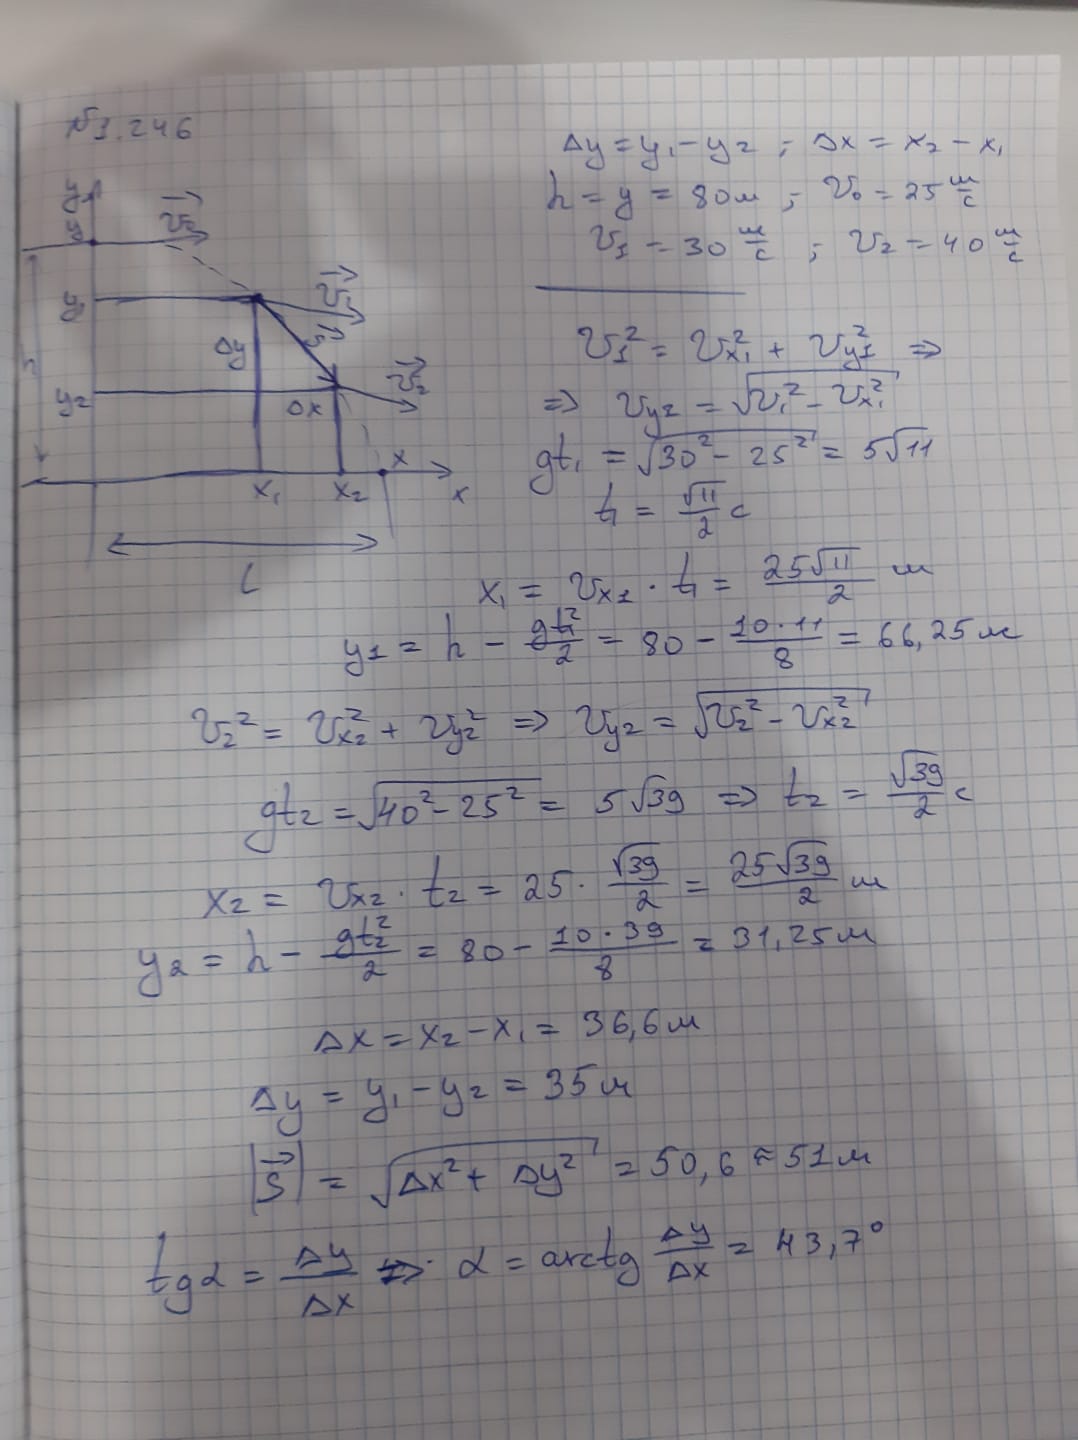 №1.246
Δy = y₁ - y₂ ; Δx = x₂ - x₁
h = y = 80м ; v₀ = 25 м/с
v₁ = 30 м/с ; v₂ = 40 м/с
y
v₀
y₁
v₁
Δy
S
v₂
y₂
Δx
h
x
x₁
x₂
x
L
v₁² = vx₁² + vy1² ⇒
⇒ vy₂ = √(v₁² - vx₁²)
gt₁ = √(30² - 25²) = 5√11
t₁ = √11/2 с
x₁ = vx₁ · t₁ = 25√11/2 м
y₁ = h - gt₁²/2 = 80 - 10·11/8 = 66,25м
v₂² = vx₂² + vy₂² ⇒ vy₂ = √(v₂² - vx₂²)
gt₂ = √(40² - 25²) = 5√39 ⇒ t₂ = √39/2 с
x₂ = vx₂ · t₂ = 25 · √39/2 = 25√39/2 м
y₂ = h - gt₂²/2 = 80 - 10·39/8 = 31,25м
Δx = x₂ - x₁ = 36,6м
Δy = y₁ - y₂ = 35м
|S| = √(Δx² + Δy²) = 50,6 ≈ 51м
tgα = Δy/Δx ⇒ α = arctg Δy/Δx = 43,7°